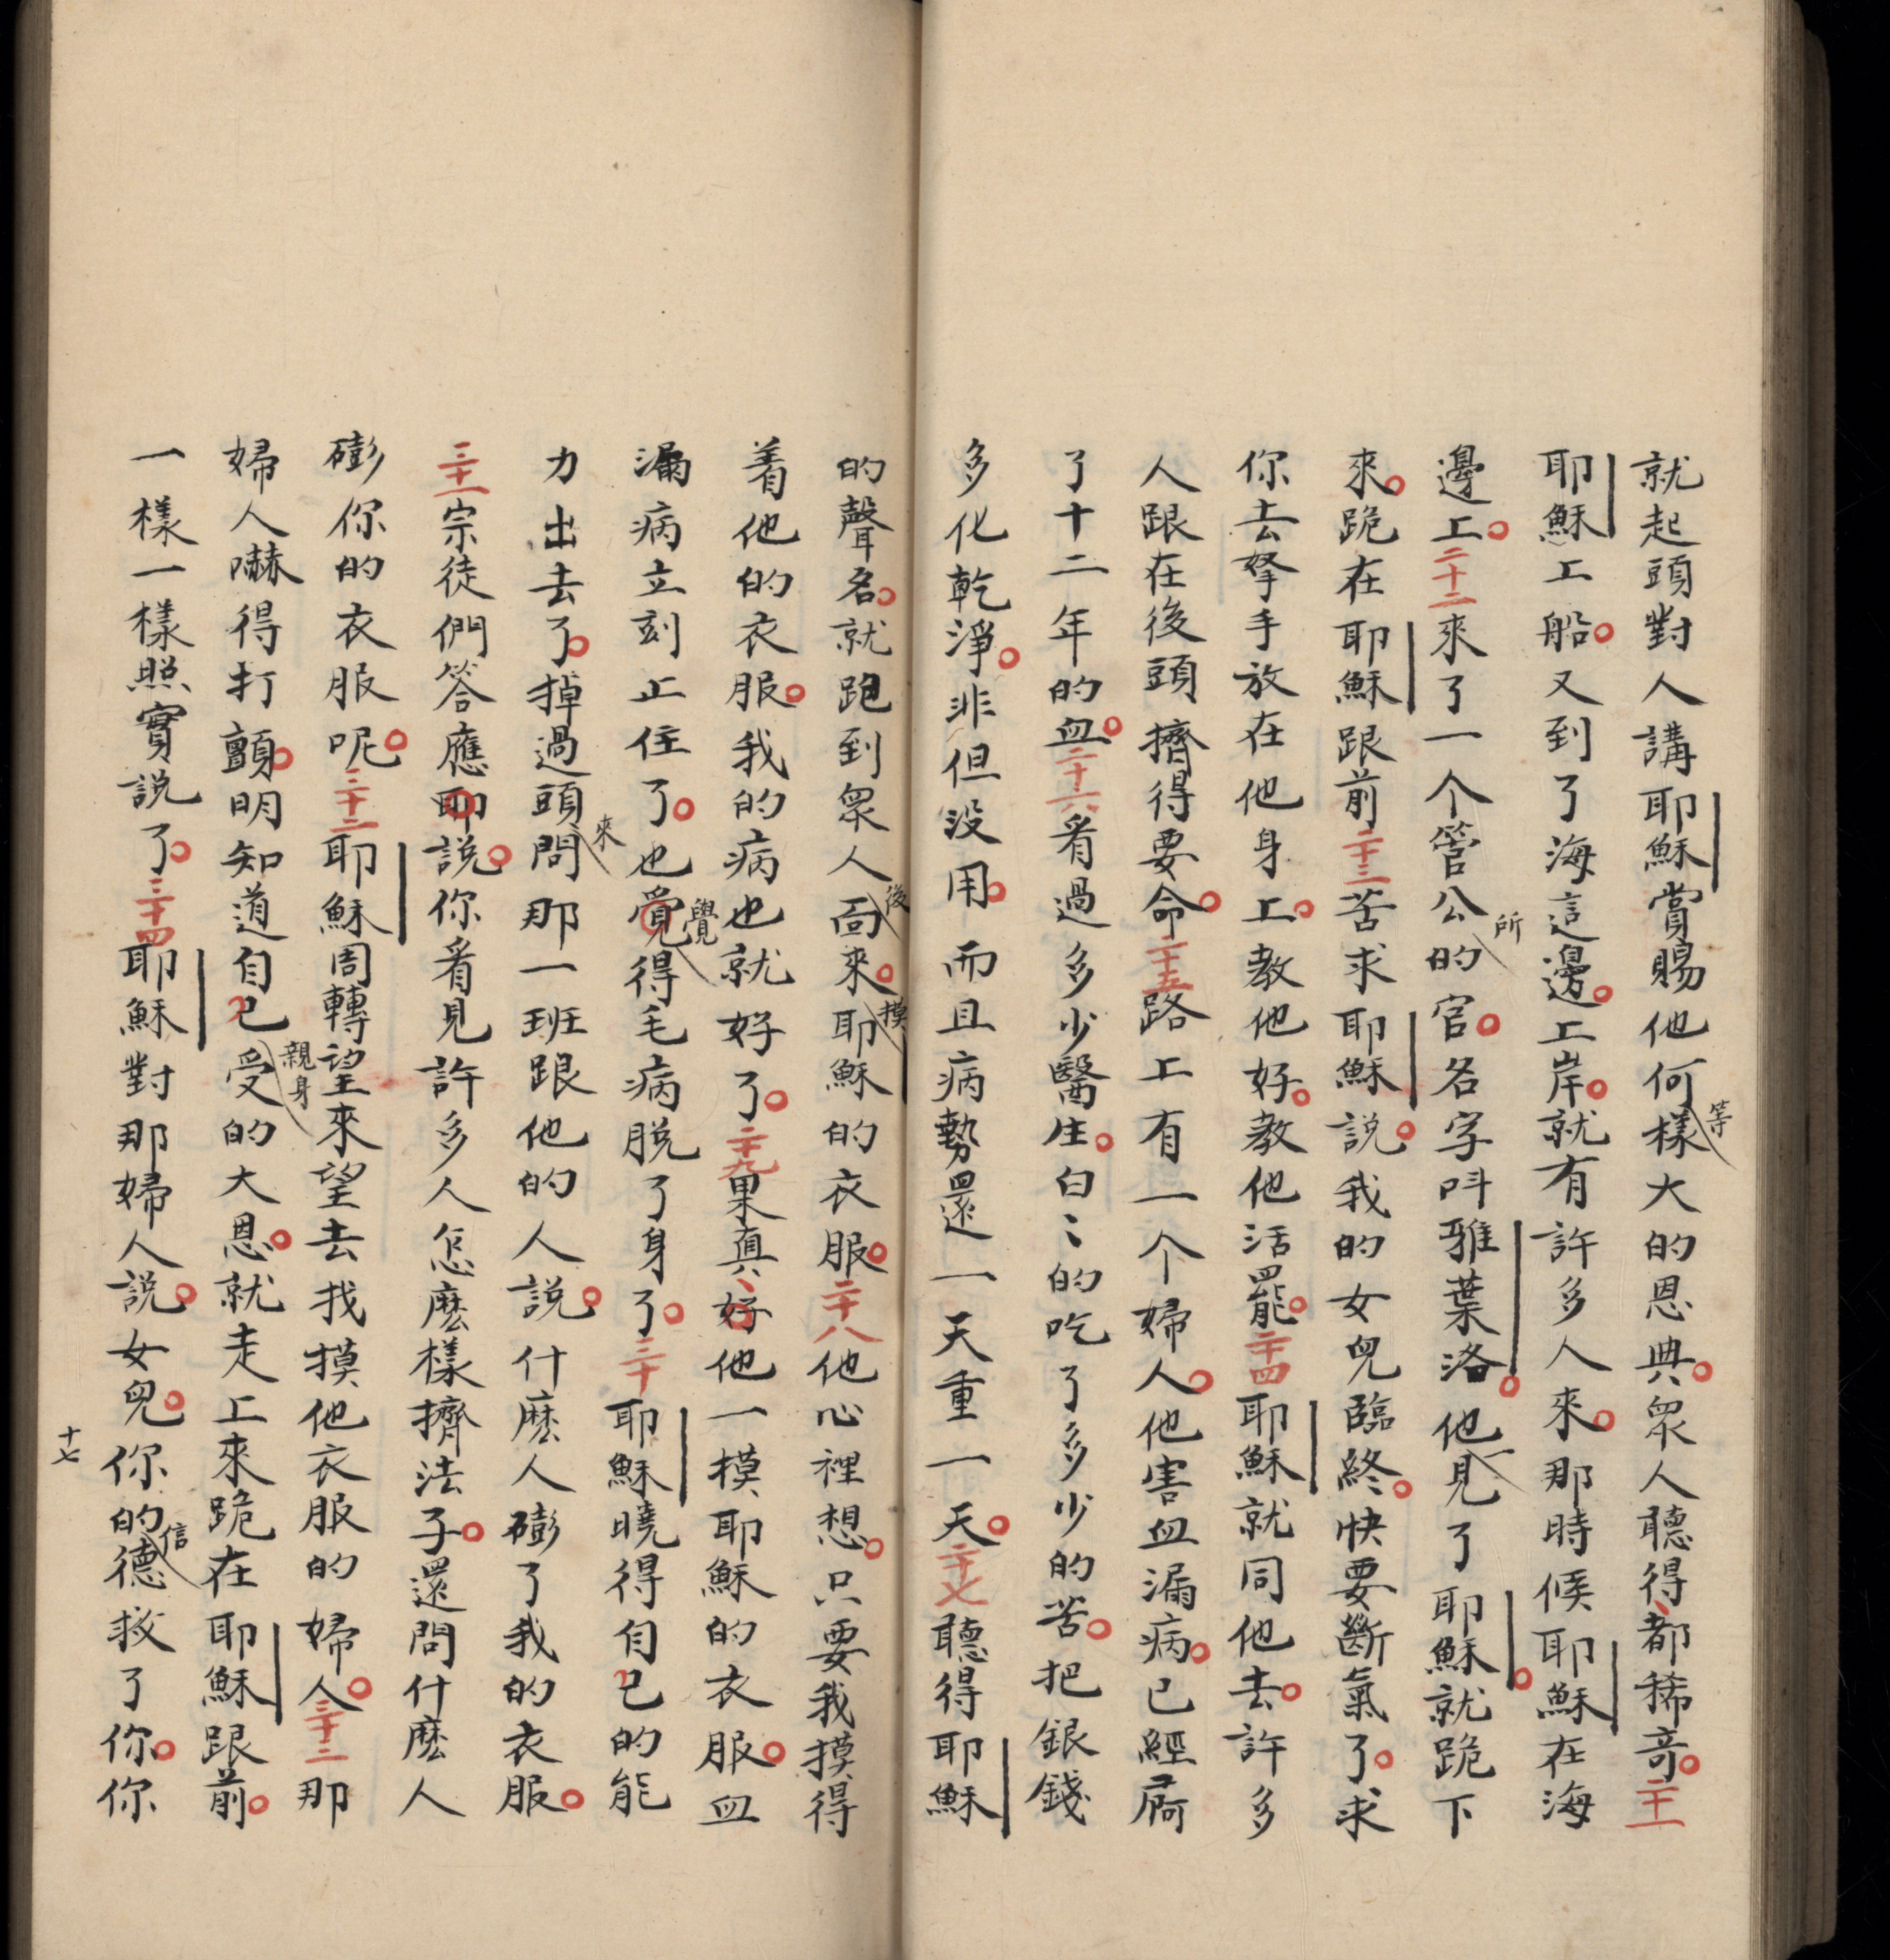 就起頭對人講耶穌賞賜他何等樣大的恩典。眾人聽得、都稀奇。二十一
耶穌上船。又到了海這邊。上岸。就有許多人來。那時候耶穌在海
邊上。二十二來了一个管公所的官。名字呌雅葉洛。他一見了耶穌。就跪下
來。跪在耶穌跟前二十三苦求耶穌說。我的女兒臨終。快要斷氣了。求
你去拏手放在他身上。教他好。教他活罷。二十四耶穌就同他去。許多
人跟在後頭擠得要命。二十五路上有一个婦人。他害血漏病。已經屙
了十二年的血。二十六看過多少醫生。白〻的吃了多少的苦。把銀錢
多化乾淨。非但没用。而且病勢還一天重一天。二十七聽得耶穌
的聲名。就跑到眾人後面來。摸耶穌的衣服。二十八他心裡想。只要我摸得
着他的衣服。我的病也就好了。二十九果真、好他一摸耶穌的衣服。血
漏病立刻止住了。也覺覺得毛病脱了身了。三十耶穌曉得自己的能
力出去了。掉過頭來問那一班跟他的人說。什麽人磞了我的衣服。
三十一宗徒們答應耶說。你看見許多人怎麽樣擠法子。還問什麽人
磞你的衣服呢。三十二耶穌周轉望來望去找摸他衣服的婦人。三十三那
婦人嚇得打顫。明知道自己親身受的大恩。就走上來跪在耶穌跟前。
一樣一樣照實說了。三十四耶穌對那婦人說。女兒。你的信德救了你。你
十七